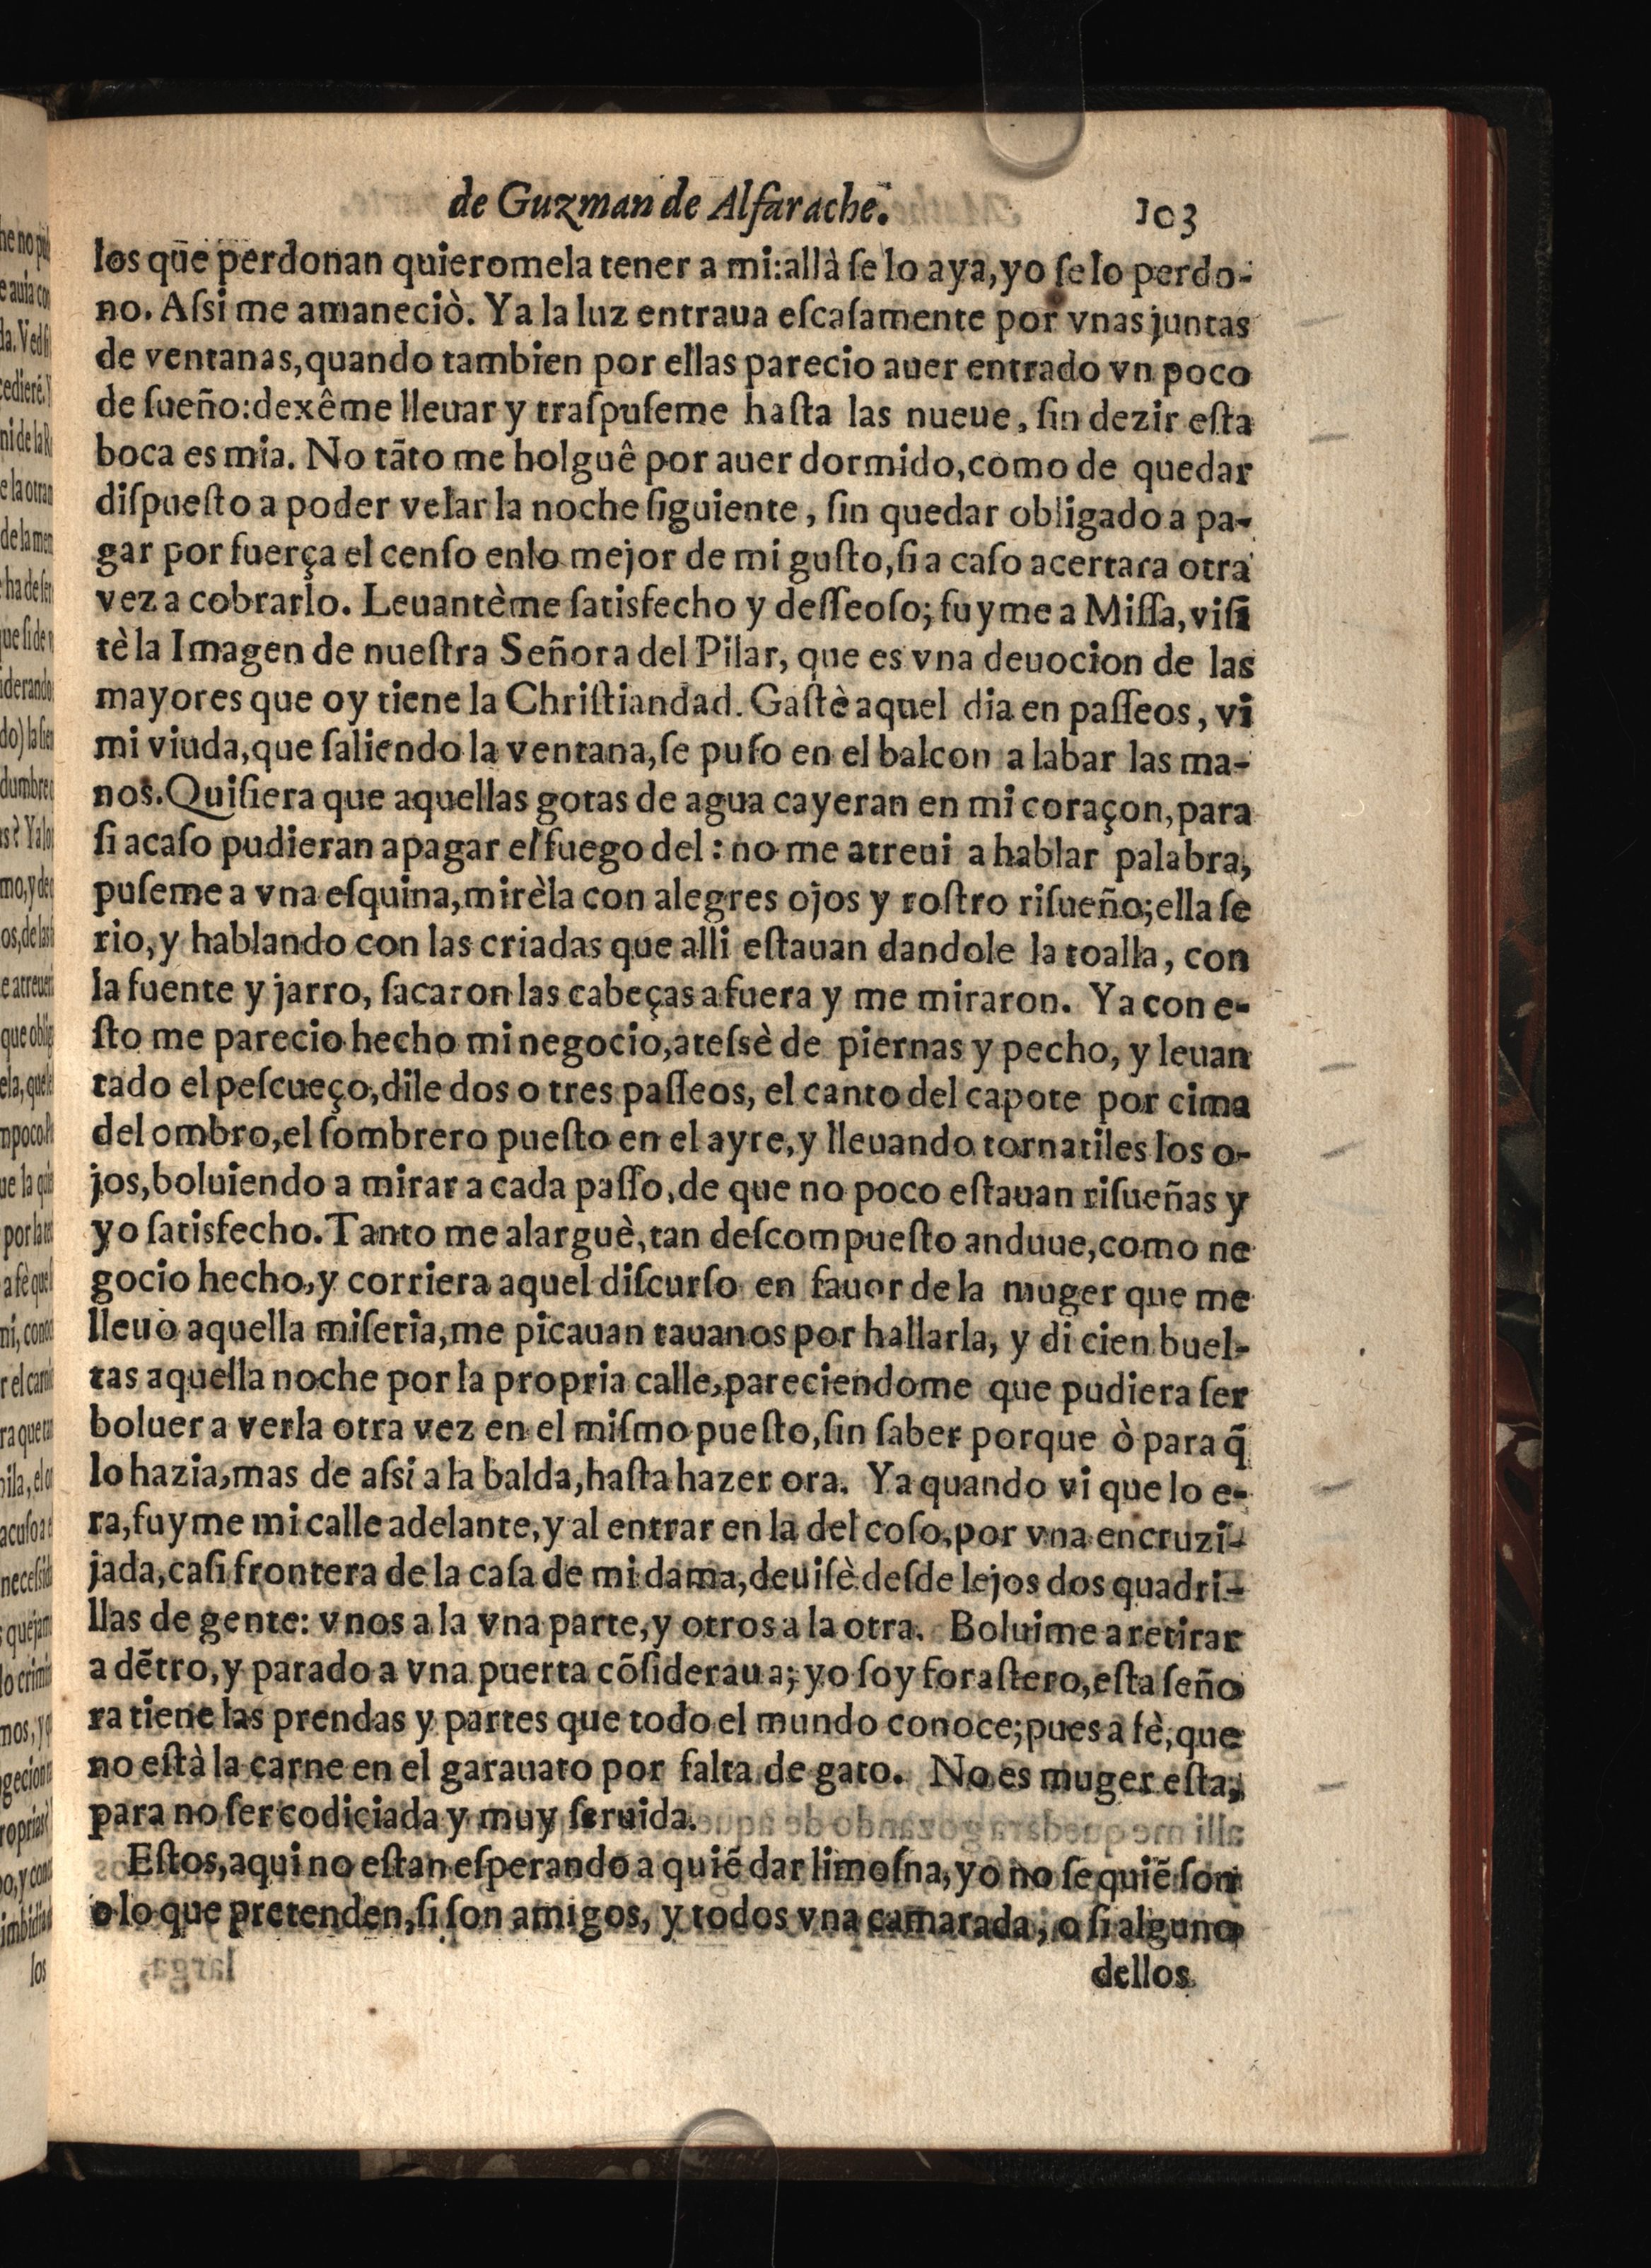 de Guzman de Alfarache.
103
los que perdonan quieromela tener a mi:allà ſe lo aya,yo ſe lo perdo-
no. Aſsi me amaneciò. Ya la luz entraua eſcaſamente por vnas juntas
de ventanas,quando tambien por ellas parecio auer entrado vn poco
de ſueño:dexême lleuar y traſpuſeme haſta las nueue, ſin dezir eſta
boca es mia. No tãto me holguê por auer dormido,como de quedar
diſpueſto a poder velar la noche ſiguiente, ſin quedar obligado a pa-
gar por fuerça el cenſo enlo mejor de mi guſto,ſi a caſo acertara otra
vez a cobrarlo. Leuantème ſatisfecho y deſſeoſo; fuyme a Miſſa, viſi
tè la Imagen de nueſtra Señora del Pilar, que es vna deuocion de las
mayores que oy tiene la Chriſtiandad. Gaſtè aquel dia en paſſeos, vi
mi viuda,que ſaliendo la ventana,ſe puſo en el balcon a labar las ma-
nos.Quiſiera que aquellas gotas de agua cayeran en mi coraçon,para
ſi acaſo pudieran apagar el fuego del : no me atreui a hablar palabra,
puſeme a vna eſquina,mirèla con alegres ojos y roſtro riſueño;ella ſe
rio,y hablando con las criadas que alli eſtauan dandole la toalla, con
la fuente y jarro, ſacaron las cabeças a fuera y me miraron. Ya con e-
ſto me parecio hecho mi negocio,ateſsè de piernas y pecho, y leuan
tado el peſcueço,dile dos o tres paſſeos, el canto del capote por cima
del ombro,el ſombrero pueſto en el ayre,y lleuando tornatiles los o-
jos,boluiendo a mirar a cada paſſo,de que no poco eſtauan riſueñas y
yo ſatisfecho.Tanto me alarguè,tan deſcompueſto anduue,como ne
gocio hecho,y corriera aquel diſcurſo en fauor de la muger que me
lleuò aquella miſeria,me picauan tauanos por hallarla, y di cien buel-
tas aquella noche por la propria calle,pareciendome que pudiera ſer
boluer a verla otra vez en el miſmo pueſto,ſin ſaber porque ò para q̃
lo hazia,mas de aſsi a la balda,haſta hazer ora. Ya quando vi que lo e-
ra,fuyme mi calle adelante,y al entrar en la del coſo,por vna encruzi-
jada,caſi frontera de la caſa de mi dama,deuiſè deſde lejos dos quadri-
llas de gente: vnos a la vna parte,y otros a la otra. Boluime a retirar
a dẽtro,y parado a vna puerta cõſideraua; yo ſoy foraſtero,eſta ſeño
ra tiene las prendas y partes que todo el mundo conoce;pues a fè,que
no eſtà la carne en el garauato por falta de gato. No es muger eſta,
para no ſer codiciada y muy ſeruida.
Eſtos,aqui no eſtan eſperando a quiẽ dar limoſna,yo no ſe quiẽ ſon
o lo que pretenden,ſi ſon amigos, y todos vna camarada, o ſi alguno
dellos